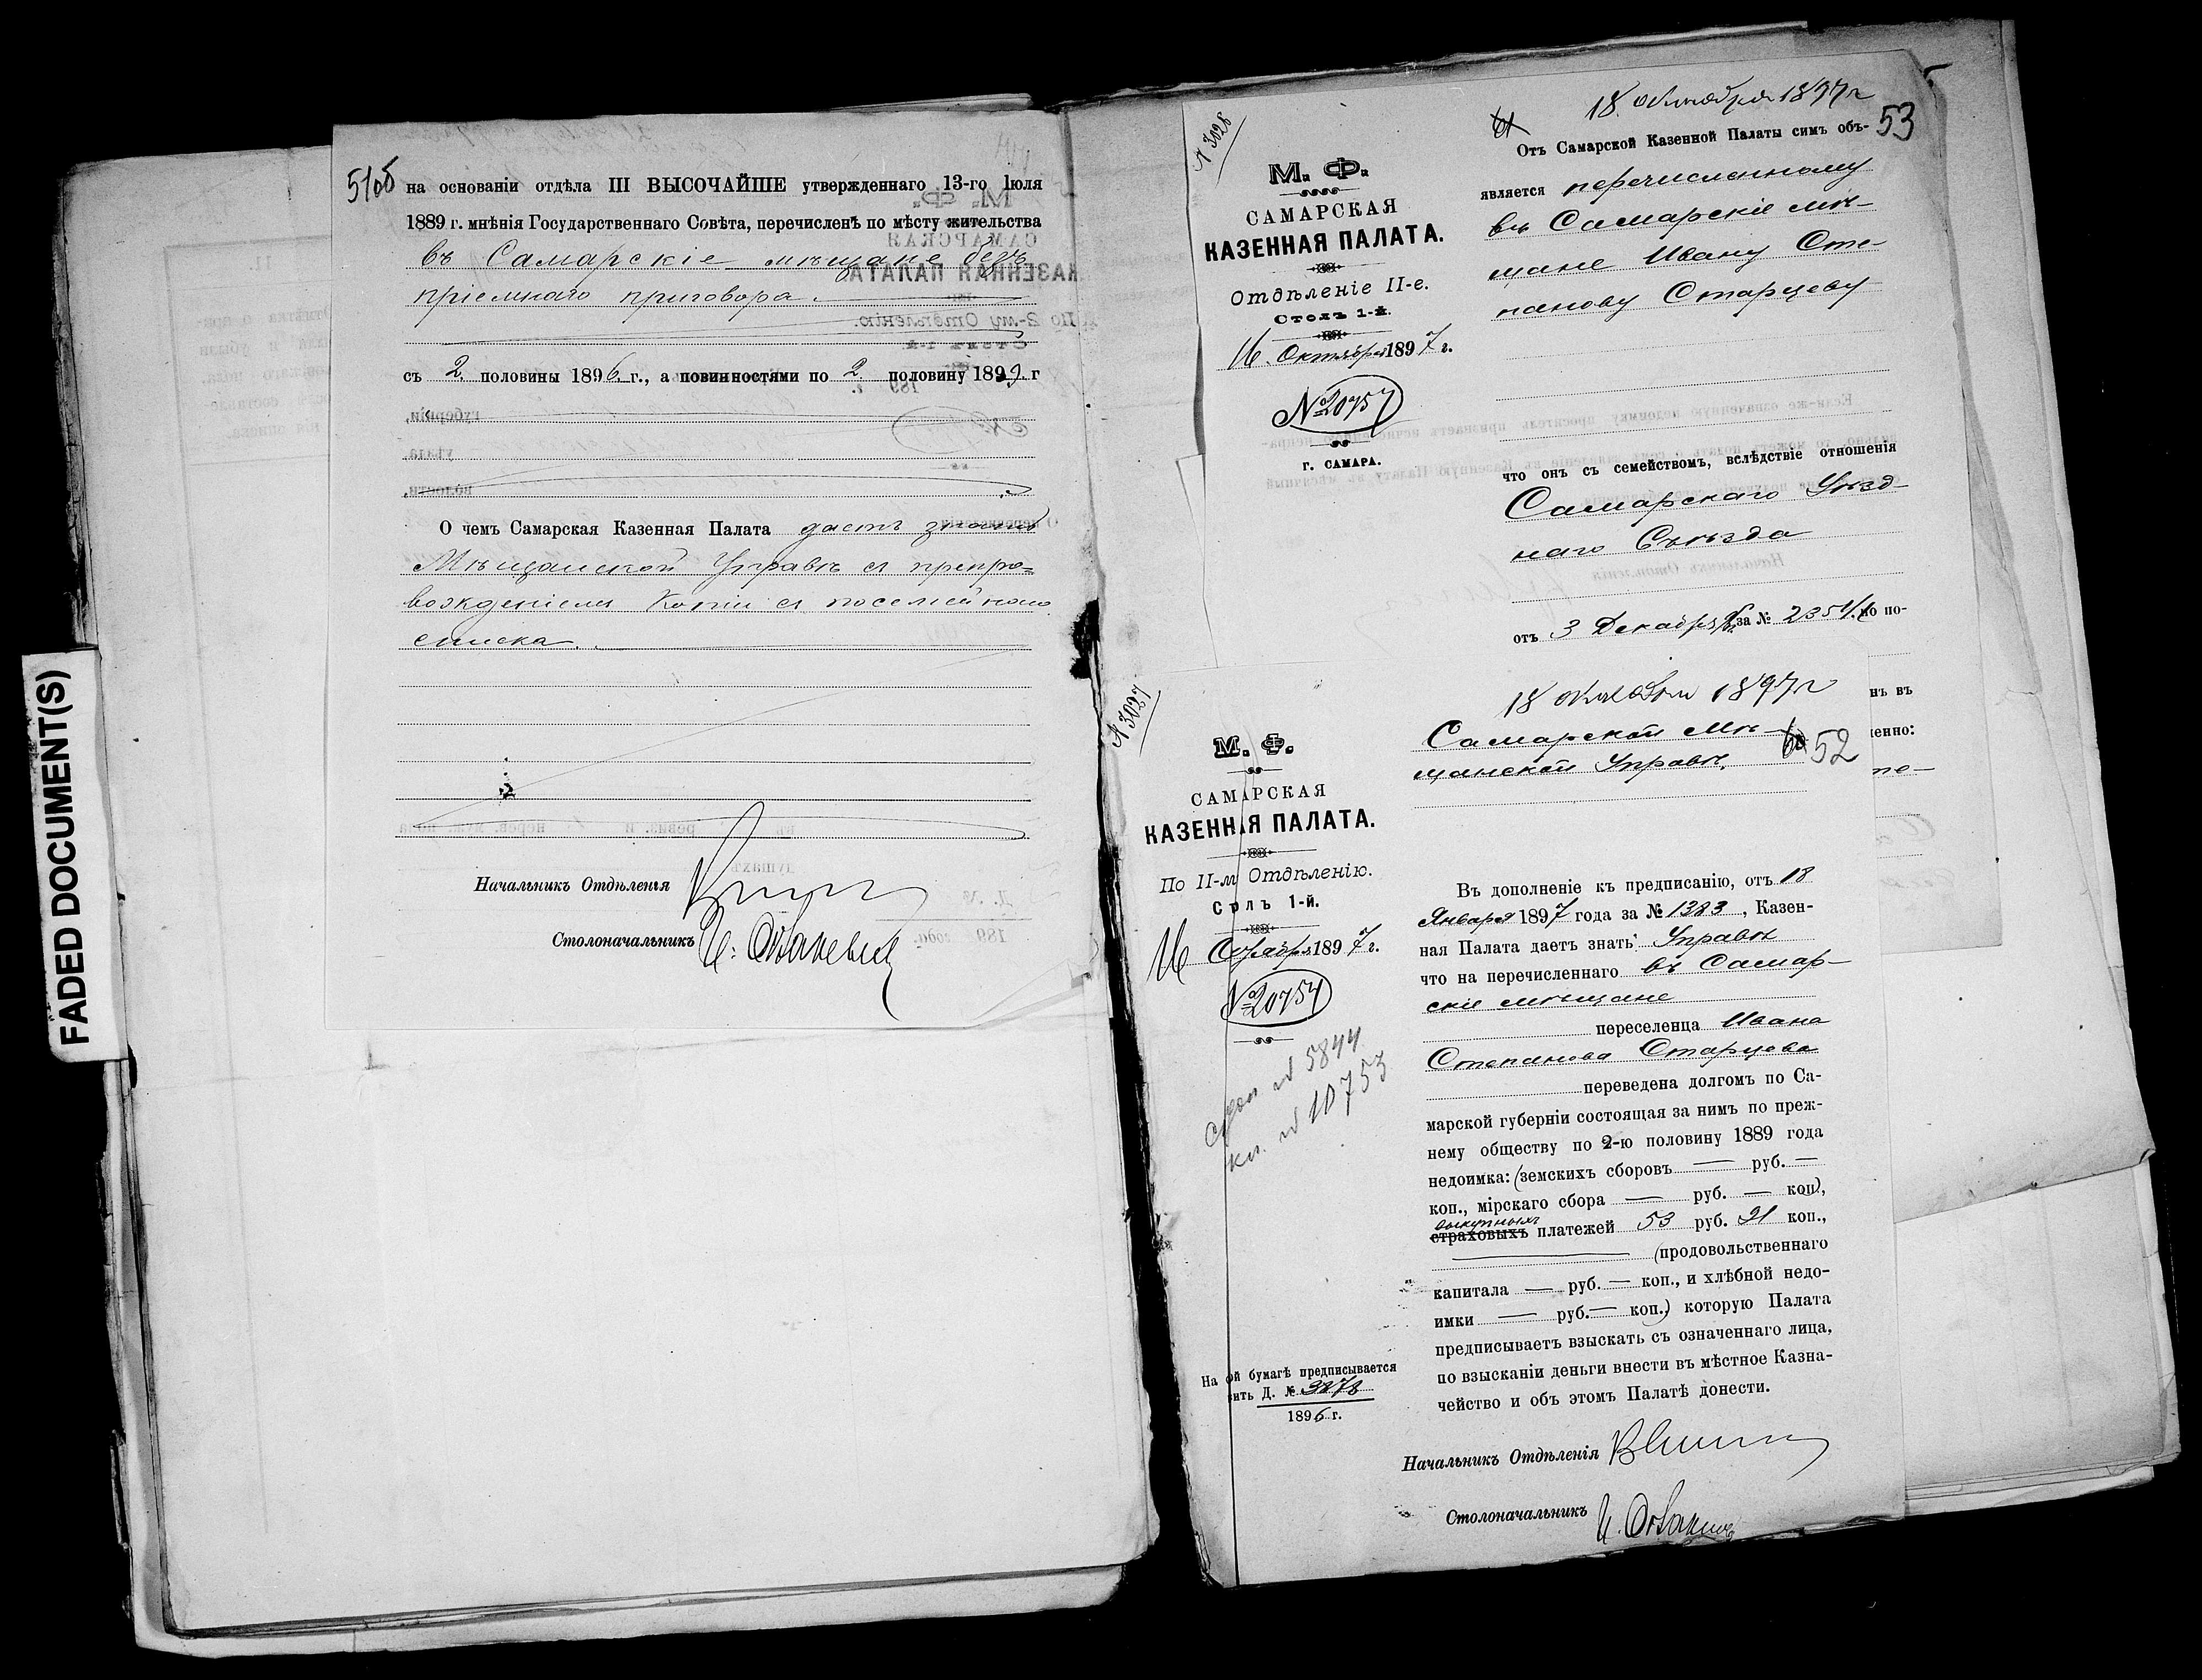 FADED DOCUMENT(S)
51об
на основаніи отдѣла III ВЫСОЧАЙШЕ утвержденнаго 13-го Іюля
1889 г. мнѣнія Государственнаго Совѣта, перечисленъ по мѣсту жительства
въ Самарскіе мѣщане безъ
пріемнаго приговора.
съ 2 половины 1896 г., а повинностями по 2 половину 1889 г
О чемъ Самарская Казенная Палата даетъ знать
Мѣщанской Управѣ съ препро=
вожденіемъ копіи съ посемейнаго
списка.
Начальникъ Отдѣленія
Столоначальникъ
№ 3028
М. Ф.
САМАРСКАЯ
КАЗЕННАЯ ПАЛАТА.
Отдѣленіе II-е.
Столъ 1-й.
16 Октября 1897 г.
№ 20757
г. САМАРА.
18 октября 1897 г
53
Отъ Самарской Казенной Палаты симъ объ-
является перечисленному
въ Самарскіе мѣ-
щане Ивану Сте-
панову Старцеву
что онъ съ семействомъ, вслѣдствіе отношенія
Самарскаго Уѣзд-
наго Съѣзда
отъ 3 Декабря за № 2351 но по-
нъ въ
менно:
те-
№ 3027
М. Ф.
САМАРСКАЯ
КАЗЕННАЯ ПАЛАТА.
По II-му Отдѣленію.
Столъ 1-й.
16 Октября 1897 г.
№ 20754
№ 5844
№ 10753
На этой бумагѣ предписывается
вить Д. № 3278
1896 г.
18 октября 1897 г
Самарской Мѣ-
щанской Управѣ.
52
Въ дополненіе къ предписанію, отъ 18
Января 1897 года за № 1383, Казен-
ная Палата даетъ знать Управѣ
что на перечисленнаго въ Самар-
скіе мѣщане
переселенца Ивана
Степанова Старцева
переведена долгомъ по Са-
марской губерніи состоящая за нимъ по преж-
нему обществу по 2-ю половину 1889 года
недоимка: (земскихъ сборовъ — руб. —
коп., мірскаго сбора — руб. — коп),
выкупныхъ
страховыхъ платежей 53 руб. 21 коп.,
(продовольственнаго
капитала — руб. — коп., и хлѣбной недо-
имки — руб. — коп.) которую Палата
предписываетъ взыскать съ означеннаго лица,
по взысканіи деньги внести въ мѣстное Казна-
чейство и объ этомъ Палатѣ донести.
Начальникъ Отдѣленія
Столоначальникъ